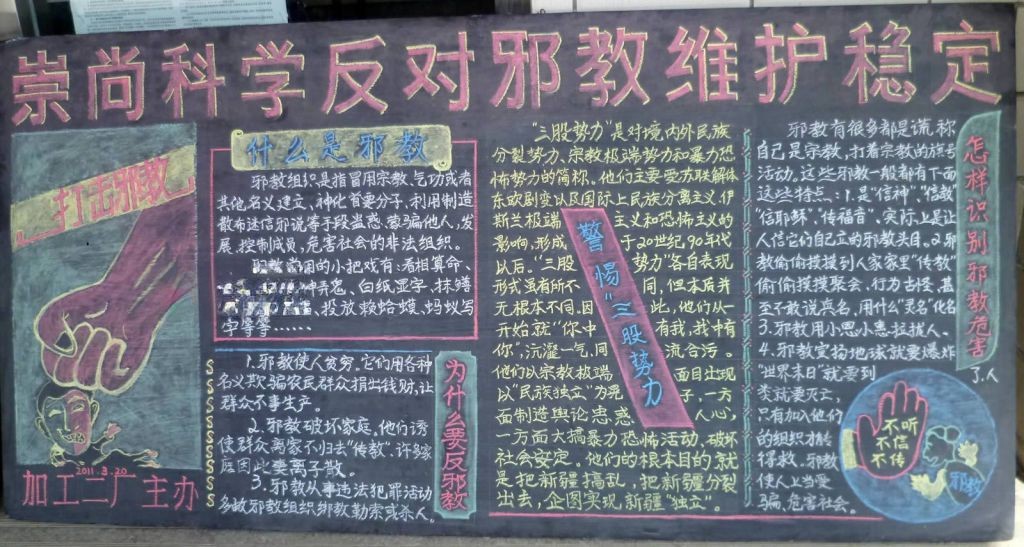 崇尚科学反对邪教维护稳定
打击邪教
2011.3.20
加工二厂主办
什么是邪教
邪教组织是指冒用宗教、气功或者
其他名义建立、神化首要分子、利用制造
散布迷信邪说等手段蛊惑、蒙骗他人,发
展、控制成员,危害社会的非法组织。
的小把戏有:看相算命、
神弄鬼、白纸显字、抹鳝
、投放赖蛤蟆、蚂蚁写
字等等……
为什么要反邪教
1.邪教使人贫穷。它们用各种
名义欺骗农民群众捐出钱财,让
群众不事生产。
2.邪教破坏家庭,他们诱
使群众离家不归去“传教”、许多家
庭因此妻离子散。
3.邪教从事违法犯罪活动
多数邪教组织绑教勒索或杀人。
警惕“三股势力
“三股势力”是对境内外民族
分裂势力、宗教极端势力和暴力恐
怖势力的简称。他们主要受苏联解体
东欧剧变以及国际上民族分离主义、伊
斯兰极端主义和恐怖主义的
影响,形成于20世纪90年代
以后。“三股势力”各自表现
形式虽有所不同,但本质并
无根本不同。因此,他们从一
开始就“你中有我,我中有
你”,沆瀣一气,同流合污。
他们以宗教极端面目出现
以“民族独立”为幌子,一方
面制造舆论蛊惑人心,
一方面大搞暴力恐怖活动,破坏
社会安定。他们的根本目的就
是把新疆搞乱,把新疆分裂
出去,企图实现新疆“独立”。
怎样识别邪教危害
邪教有很多都是谎称
自己是宗教,打着宗教的旗号
活动。这些邪教一般都有下面
这些特点:1.是“信神”、“信教”
“信耶稣”、“传福音”,实际上是让
人信它们自己立的邪教头目。2.邪
教偷偷摸摸到人家家里“传教”
偷偷摸摸聚会、行为古怪、甚
至不敢说真名,用什么“灵名”化名
3.邪教用小恩小惠拉拢人。
4.邪教宣扬地球就要爆炸
“世界末日”就要到了.人
类就要灭亡,
只有加入他们
的组织才能
得救。邪教
使人上当受
骗、危害社会。
不听
不信
不传
邪教